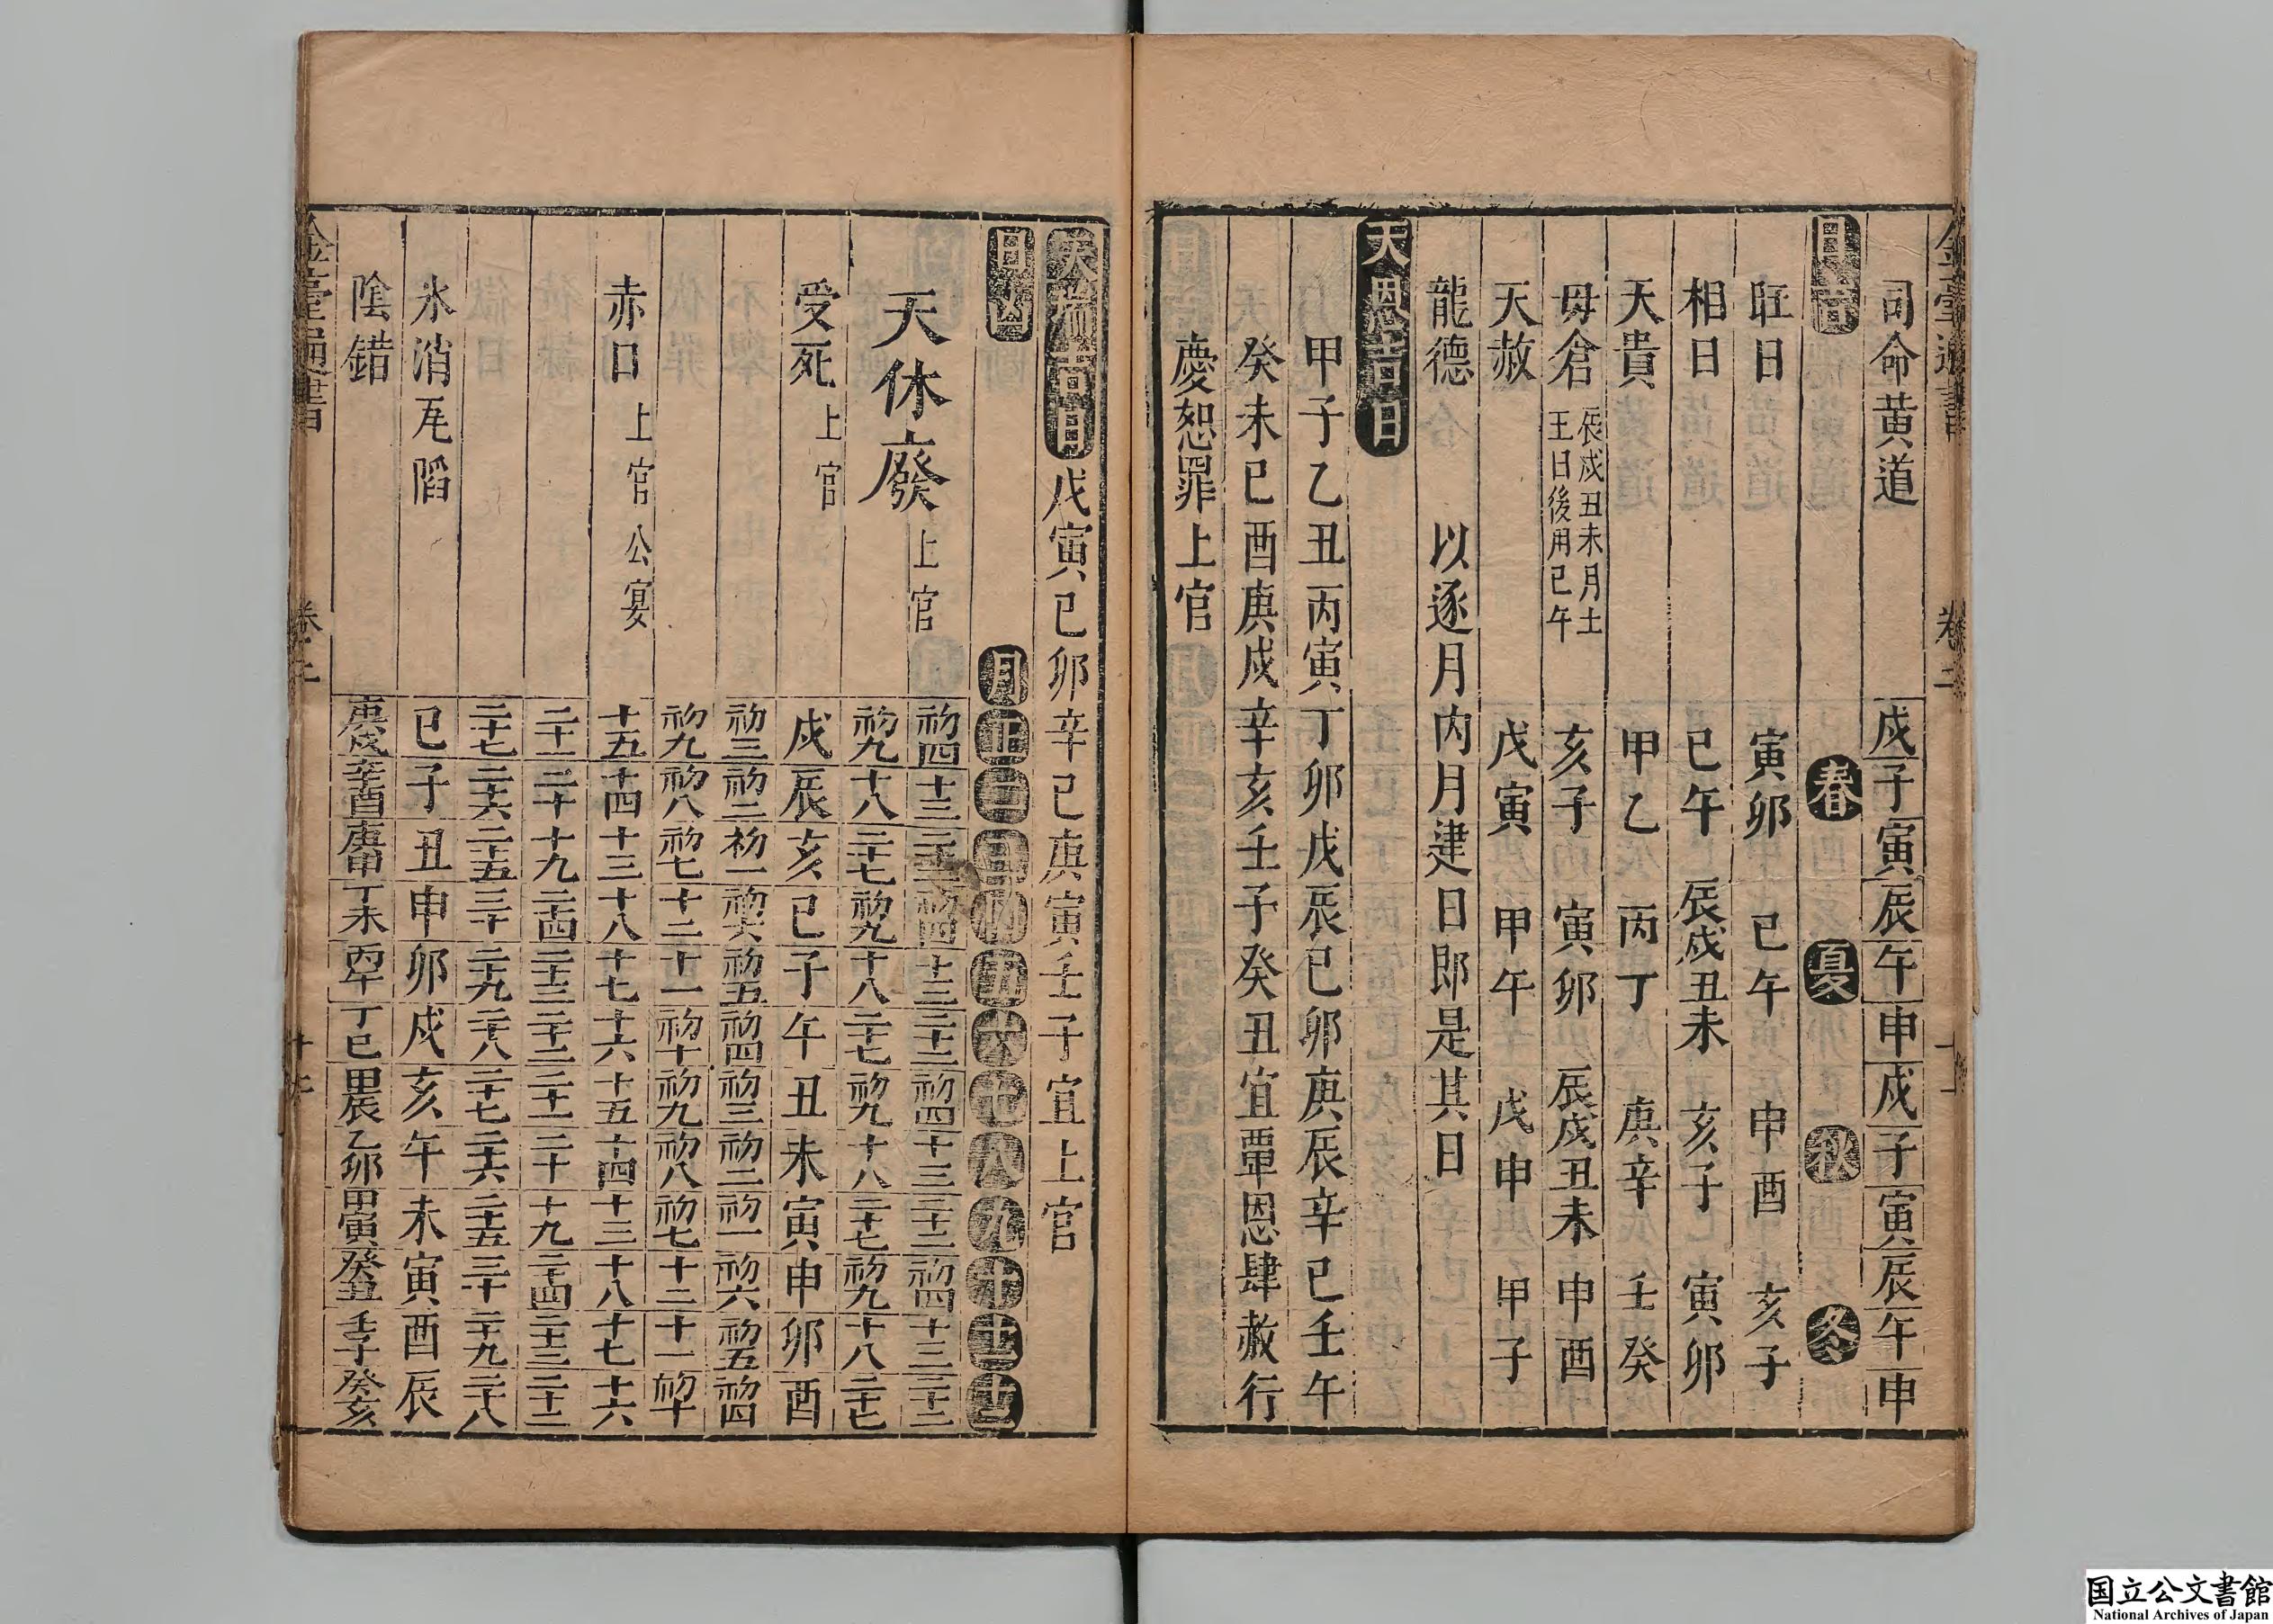 金臺通書　卷二
司命黃道　戌子寅辰午申戌子寅辰午申
日吉　春　夏　秋　冬
旺日　寅卯　巳午　申酉　亥子
相日　巳午　辰戌丑未　亥子　寅卯
天貴　甲乙　丙丁　庚辛　壬癸
母倉　辰戌丑未月土王日後用巳午　亥子　寅卯　辰戌丑未　申酉
天赦　戊寅　甲午　戊申　甲子
龍德　以逐月內月建日即是其日
天恩吉日
甲子乙丑丙寅丁卯戊辰己卯庚辰辛巳壬午
癸未己酉庚戌辛亥壬子癸丑宜覃恩肆赦行
慶恕罪上官
天瑞吉日　戊寅己卯辛巳庚寅壬子宜上官
日凶　月正二三四五六七八九十十一十二
天休廢　上官　初四十三二十二初四十三二十二初四十三二十二初四十三二十二
初九十八二十七初九十八二十七初九十八二十七初九十八二十七
受死　上官　戌辰亥巳子午丑未寅申卯酉
初三初二初一初六初五初四初三初二初一初六初五初四
初九初八初七十二十一初十初九初八初七十二十一初十
赤口　上官公宴　十五十四十三十八十七十六十五十四十三十八十七十六
二十一二十十九二十四二十三二十二二十一二十十九二十四二十三二十二
二十七二十六二十五三十二十九二十八二十七二十六二十五三十二十九二十八
氷消瓦陷　巳子丑申卯戌亥午未寅酉辰
陰錯　庚戌辛酉庚申丁未丙午丁巳甲辰乙卯甲寅癸丑壬子癸亥
金臺通書　卷二
国立公文書館
National Archives of Japan